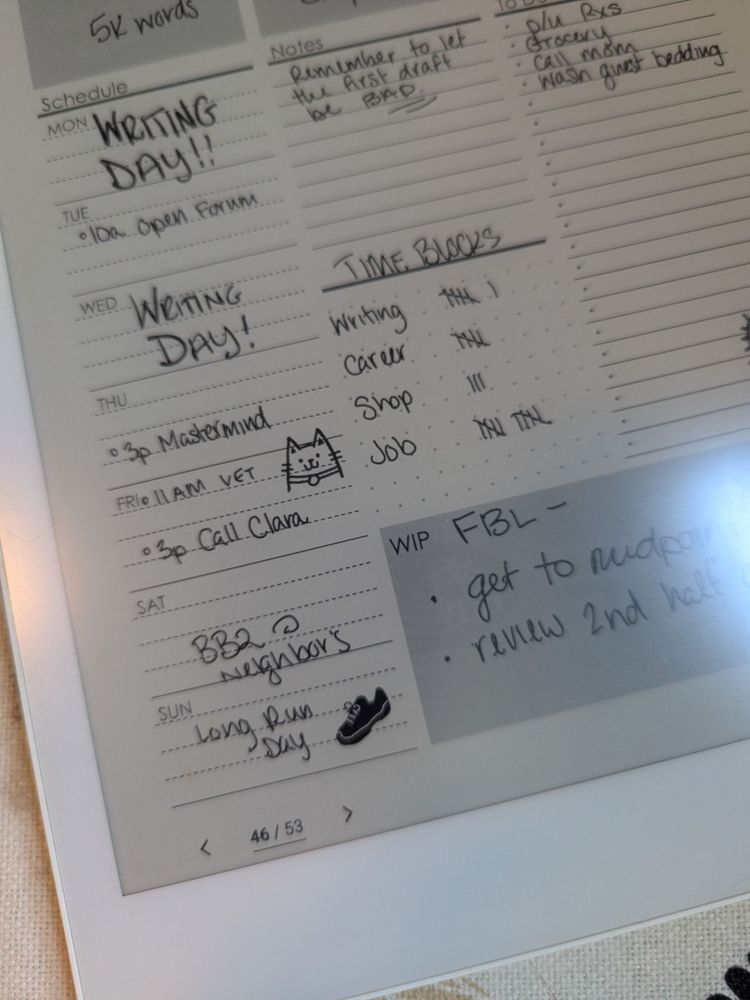 5K words
Schedule
MON WRITING
DAY!!
TUE
10a Open Forum
WED WRITING
DAY!
THU
3p Mastermind
FRI 11AM VET
3p Call Clara
SAT
BB2 @
Neighbor's
SUN
Long Run
Day
Notes
Remember to let
the first draft
be BAD.
p/u Rxs
Grocery
call mom
wash guest bedding
TIME BLOCKS
Writing
Career
Shop
Job
WIP FBL -
get to
review 2nd half
< 46 / 53 >